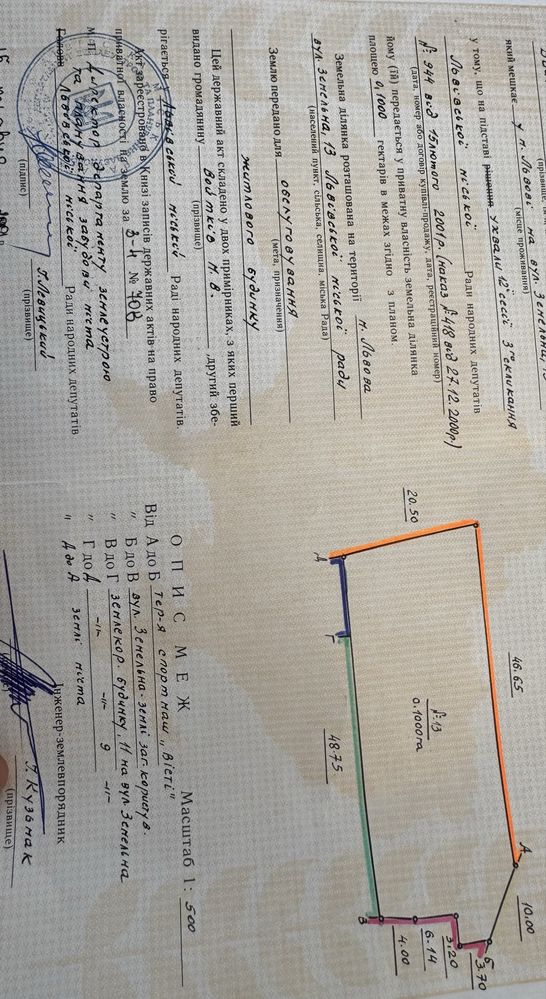 який мешкає у м. Львові на вул. Земельна, 13
(місце проживання)
у тому, що на підставі рішення ухвали 12ої сесії 3го скликання
Львівської міської Ради народних депутатів
№ 944 від 15 лютого 2001р. (наказ №418 від 27.12.2000р.)
(дата, номер або договір купівлі-продажу, дата, реєстраційний номер)
йому (їй) передається у приватну власність земельна ділянка
площею 0,1000 гектарів в межах згідно з планом.
Земельна ділянка розташована на території м. Львова
вул. Земельна, 13 Львівської міської ради
(населений пункт, сільська, селищна, міська Рада)
Землю передано для обслуговування
(мета, призначення)
житлового будинку
Цей державний акт складено у двох примірниках, з яких перший
видано громадянину Войтків М. В. , другий збе-
(прізвище)
рігається Львівській міській Раді народних депутатів.
Акт зареєстровано в Книзі записів державних актів на право
приватної власності на землю за З-4 № 708
М. П. Директор департаменту землеустрою
та планування забудови міста
Голова Львівської міської Ради народних депутатів
Г. Левицький
(підпис) (прізвище)
20.50
46.65
10.00
3.70
3.20
6.14
4.00
48.75
№ 13
0.1000га
А
Б
В
Г
Д
ОПИС МЕЖ
Масштаб 1: 500
Від А до Б тер-я спорт маш „Вісті"
„ Б до В вул. Земельна-землі заг. користув.
„ В до Г землекор. будинку, 11 на вул. Земельна
„ Г до Д -//- -//- 9 -//-
„ Д до А землі міста
Інженер-землевпорядник
Г. Кузьмак
(прізвище)